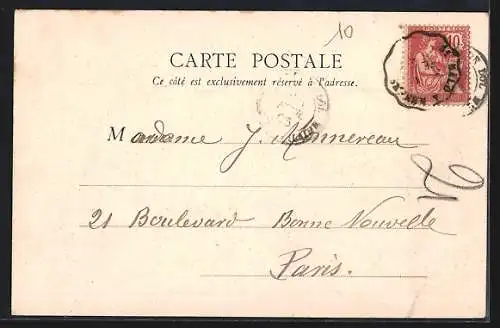 10
CARTE POSTALE
Ce côté est exclusivement réservé à l'adresse.
10
Madame J. Monnereau
21 Boulevard Bonne Nouvelle
Paris.